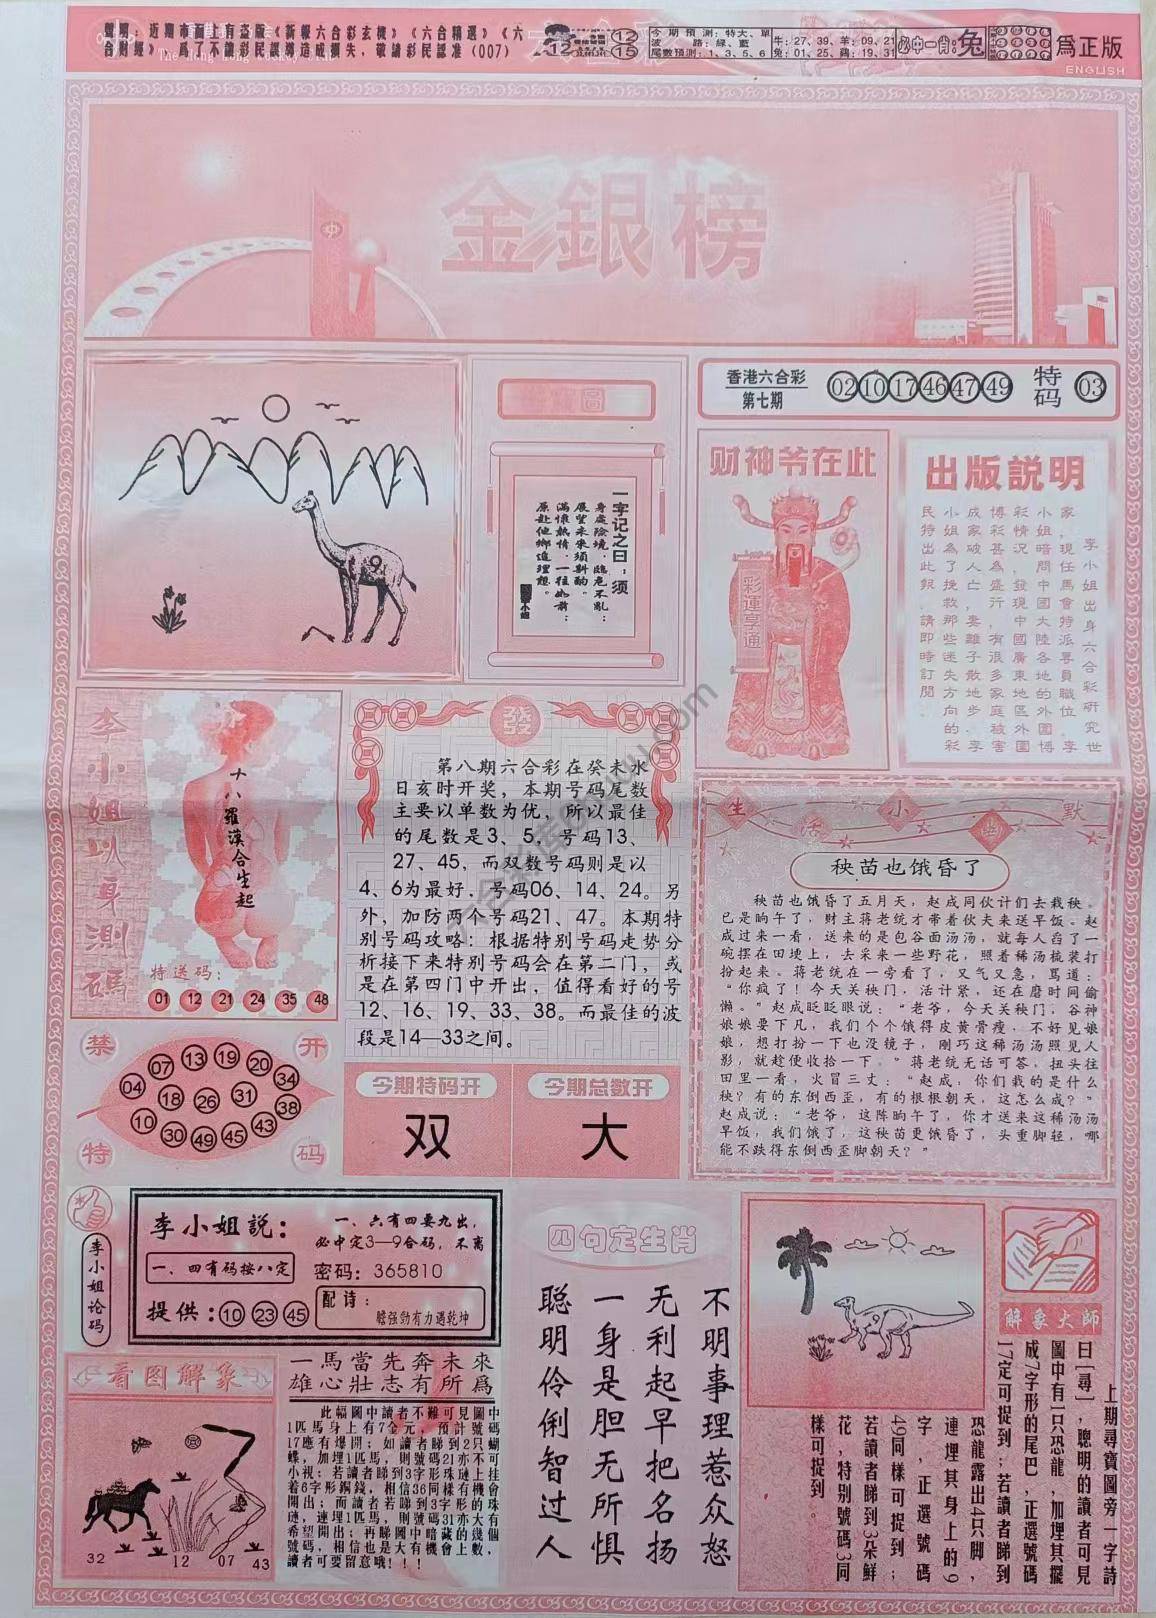 聲明：近期市面上有盜版《新報六合彩玄機》《六合精選》《六
合財經》，為了不讓彩民誤導造成損失，敬請彩民認准（007）
12
12
15
今期預測：特大、單
波　　路：綠、藍
尾數預測：1、3、5、6
牛：27、39、羊：09、21
兔：01、25、鷄：19、31
必中一肖：兔
為正版
ENGLISH
金銀榜
香港六合彩
第七期
02 10 17 46 47 49
特码
03
一字记之曰：须
身處險境，臨危不亂；
展望未來須斟酌。
滿懷熱情，一往如前；
原赴他鄉追理想。
财神爷在此
彩運享通
出版説明
李小姐出身六合彩研究世
家，現任馬會特派專員職位，李
小姐暗中中大陸各地的外圍博
彩情况，問發現國國廣東地區外圍
博家甚為盛行，有很多家庭被
成破人亡，妻離子散地步，害
小姐為了挽救那些迷失方向的彩
民特出此報，請即時訂閱。
李小姐以身測碼
十八羅漢合生起
特送码：
01 12 21 24 35 48
發
第八期六合彩在癸未水
日亥时开奖，本期号码尾数
主要以单数为优，所以最佳
的尾数是3、5，号码13、
27、45，而双数号码则是以
4、6为最好，号码06、14、24。另
外，加防两个号码21、47。本期特
别号码攻略：根据特别号码走势分
析接下来特别号码会在第二门，或
是在第四门中开出，值得看好的号
12、16、19、33、38。而最佳的波
段是14—33之间。
生活小幽默
秧苗也饿昏了
秧苗也饿昏了五月天，赵成同伙计们去栽秧。
已是晌午了，财主蒋老统才带着伙夫来送早饭。赵
成过来一看，送来的是包谷面汤汤，就每人舀了一
碗摆在田埂上，去采来一些野花，照着稀汤梳装打
扮起来。蒋老统在一旁看了，又气又急，骂道：
“你疯了！今天关秧门，活计紧，还在磨时间偷
懒。”赵成眨眨眼说：“老爷，今天关秧门，谷神
娘娘要下凡，我们个个饿得皮黄骨瘦，不好见娘
娘，想打扮一下也没镜子，刚巧这稀汤汤照见人
影，就趁便收拾一下。”蒋老统无话可答，扭头往
田里一看，火冒三丈：“赵成，你们栽的是什么
秧？有的东倒西歪，有的根根朝天，这怎么成？”
赵成说：“老爷，这阵晌午了，你才送来这稀汤汤
早饭，我们饿了，这秧苗更饿昏了，头重脚轻，哪
能不跌得东倒西歪脚朝天？”
禁开特码
07 13 19 20 34
04 18 26 31 38
10 30 49 45 43
今期特码开
双
今期总数开
大
李小姐论码
李小姐説：
一、六有四要九出，
必中定3—9合码，不离
一、四有码按八定
密码：365810
提供：10 23 45
配诗：
膽强勁有力遇乾坤
看图解象
32
12
07
43
一馬當先奔未來
雄心壯志有所為
此幅圖中讀者不難可見圖中
1匹馬身上有7金元，預計號碼
17應有爆開；如讀者睇到2只蝴
蝶，加埋1匹馬，則號碼21亦不可
小視；若讀者睇到3字形珠鏈上挂
着6字形銅錢，相信36同樣有機會
開出；而讀者若睇到3字形的珠
鏈，連埋1匹馬，則號碼31亦大有
希望開出；再睇圖中暗藏的幾個
號碼，相信也是大有機會上數，
讀者可要留意哦！！！
四句定生肖
不明事理惹众怒
无利起早把名扬
一身是胆无所惧
聪明伶俐智过人
解象大師
上期尋寶圖旁一字詩
曰[尋]，聰明的讀者可見
圖中有1只恐龍，加埋其擺
成7字形的尾巴，正選號碼
17定可捉到；若讀者睇到
恐龍露出4只脚，
連埋其身上的9
字，正選號碼
49同樣可捉到；
若讀者睇到3朵鮮
花，特別號碼3同
樣可捉到。